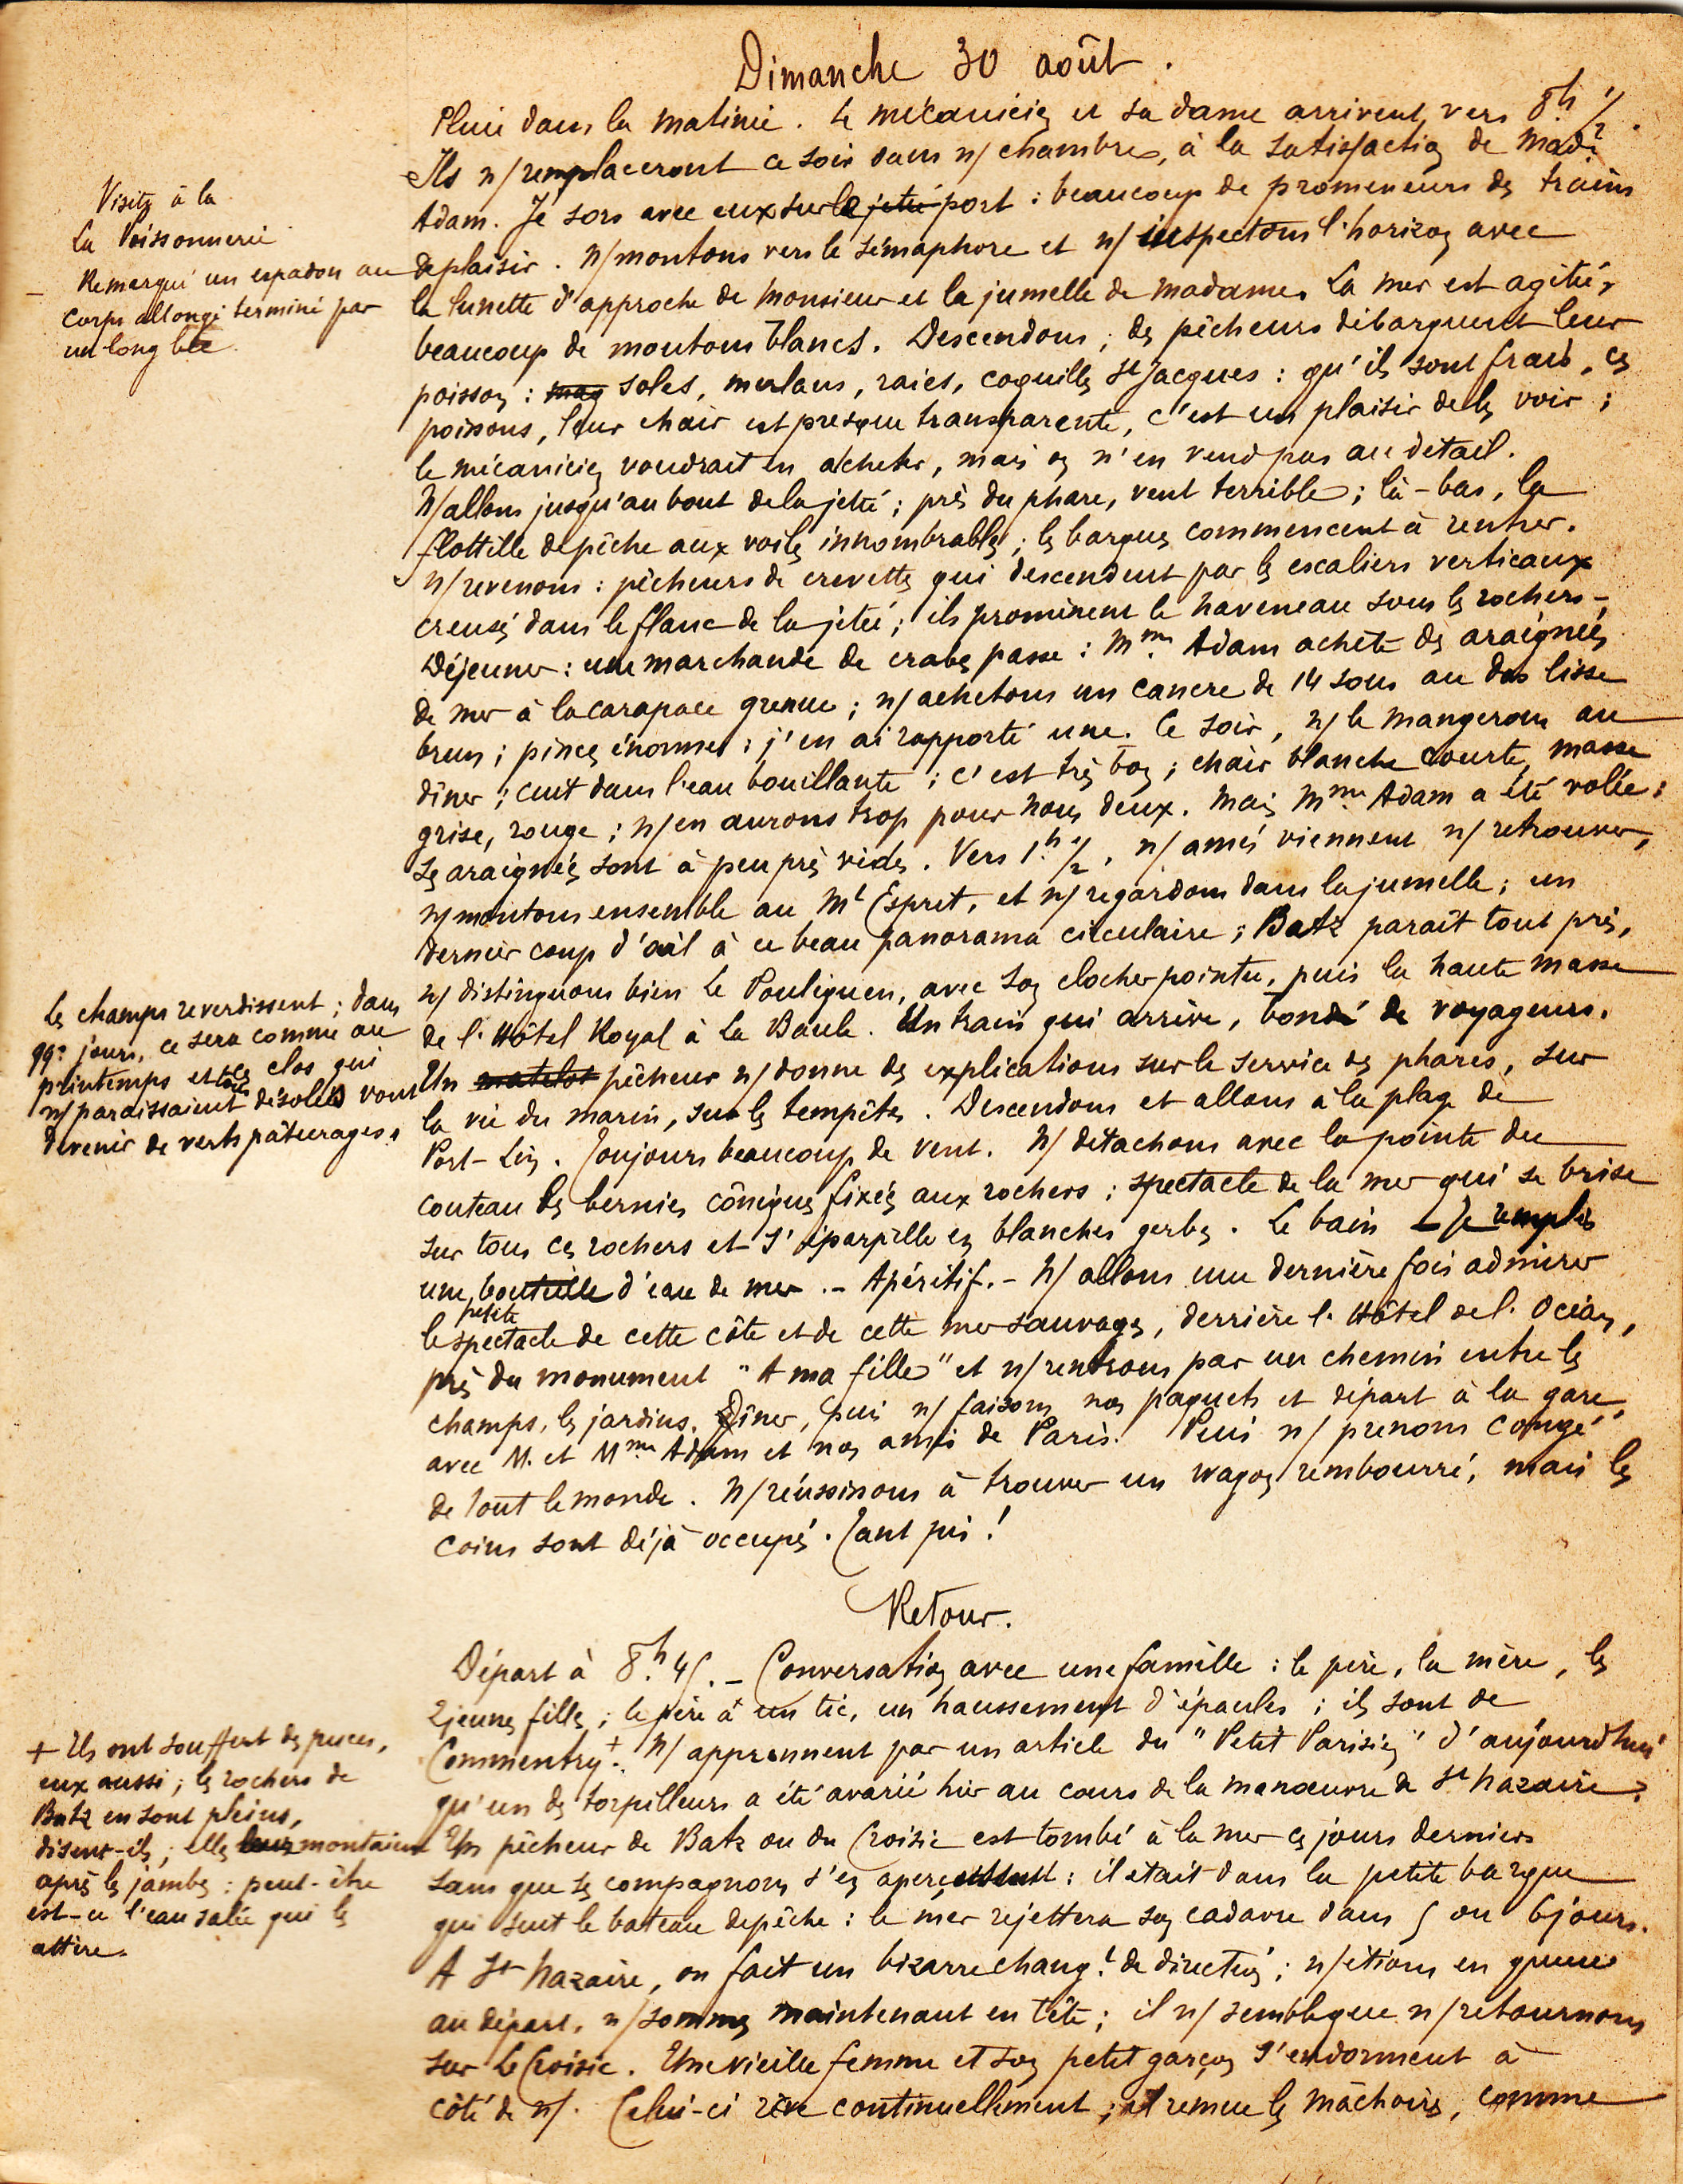 Dimanche 30 août.
Pluie dans la matinée. Le mécanicien et sa dame arrivent vers 8h 1/2.
Ils n/ remplaceront ce soir dans n/ chambre, à la satisfaction de Made
Adam. Je sors avec eux sur le jetée port : beaucoup de promeneurs des trains
de plaisir. N/ montons vers le sémaphore et n/ inspectons l'horizon avec
la lunette d'approche de Monsieur et la jumelle de Madame. La mer est agitée,
beaucoup de moutons blancs. Descendons ; des pêcheurs débarquent leur
poisson : maq soles, merlans, raies, coquilles St Jacques : qu'ils sont frais, ces
poissons, leur chair est presque transparente, c'est un plaisir de les voir ;
le mécanicien voudrait en acheter, mais on n'en vend pas au détail.
N/ allons jusqu'au bout de la jetée ; près du phare, vent terrible ; là-bas, la
flottille de pêche aux voiles innombrables ; les barques commencent à rentrer.
N/ revenons : pêcheurs de crevettes qui descendent par les escaliers verticaux
creusés dans le flanc de la jetée ; ils promènent le haveneau sous les rochers -
Déjeuner : une marchande de crabes passe : Mme Adam achète des araignées
de mer à la carapace grenue ; n/ achetons un cancre de 14 sous au dos lisse
brun ; pinces énormes ; j'en ai rapporté une. Ce soir, n/ le mangerons au
dîner ; cuit dans l'eau bouillante ; c'est très bon ; chair blanche courte, masse
grise, rouge ; n/ en aurons trop pour nous deux. Mais Mme Adam a été volée :
ses araignées sont à peu près vides. Vers 1h 1/2, n/ amis viennent n/ retrouver,
n/ montons ensemble au Mt Esprit, et n/ regardons dans la jumelle ; un
dernier coup d'œil à ce beau panorama circulaire ; Batz paraît tout près,
n/ distinguons bien Le Pouliguen, avec son clocher pointu, puis la haute masse
de l'Hôtel Royal à La Baule. Un train qui arrive, bondé de voyageurs.
Un matelot pêcheur n/ donne des explications sur le service des phares, sur
la vie du marin, sur les tempêtes. Descendons et allons à la plage de
Port-Lin. Toujours beaucoup de vent. N/ détachons avec la pointe du
couteau les bernies côniques fixées aux rochers ; spectacle de la mer qui se brise
sur tous ces rochers et s'éparpille en blanches gerbes. Le bain - Je remplis
une petite bouteille d'eau de mer. - Apéritif. - N/ allons une dernière fois admirer
le spectacle de cette côte et de cette mer sauvages, derrière l'Hôtel de l'Océan,
près du monument "A ma fille" et n/ rentrons par un chemin entre les
champs, les jardins. Dîner, puis n/ faisons nos paquets et départ à la gare,
avec M. et Mme Adam et nos amis de Paris. Puis n/ prenons congé
de tout le monde. N/ réussissons à trouver un wagon rembourré, mais les
coins sont déjà occupés. Tant pis !
Visite à la
La Poissonnerie
- Remarqué un espadon au
corps allongé terminé par
un long bec
Les champs reverdissent ; dans
qq. jours, ce sera comme au
printemps et tous ces clos qui
n/ paraissaient désolés vont
devenir de verts pâturages.
Retour.
Départ à 8h 45. - Conversation avec une famille : le père, la mère, les
2 jeunes filles ; le père a un tic, un haussement d'épaules ; ils sont de
Commentry +. N/ apprennent par un article du "Petit Parisien" d'aujourd'hui
qu'un des torpilleurs a été avarié hier au cours de la manœuvre de St Nazaire.
Un pêcheur de Batz ou du Croisic est tombé à la mer ces jours derniers
sans que ses compagnons s'en aperçussent : il était dans la petite barque
qui suit le bateau de pêche : la mer rejettera son cadavre dans 5 ou 6 jours.
A St Nazaire, on fait un bizarre changt de direction ; n/ étions en queue
au départ, n/ sommes maintenant en tête ; il n/ semble que n/ retournons
sur Le Croisic. Une vieille femme et son petit garçon s'endorment à
côté de n/. Celui-ci rêve continuellement ; et remue les mâchoires, comme
+ Ils ont souffert des puces,
eux aussi ; les rochers de
Batz en sont pleins,
disent-ils ; elles leur montaient
après les jambes : peut-être
est-ce l'eau salée qui les
attire.